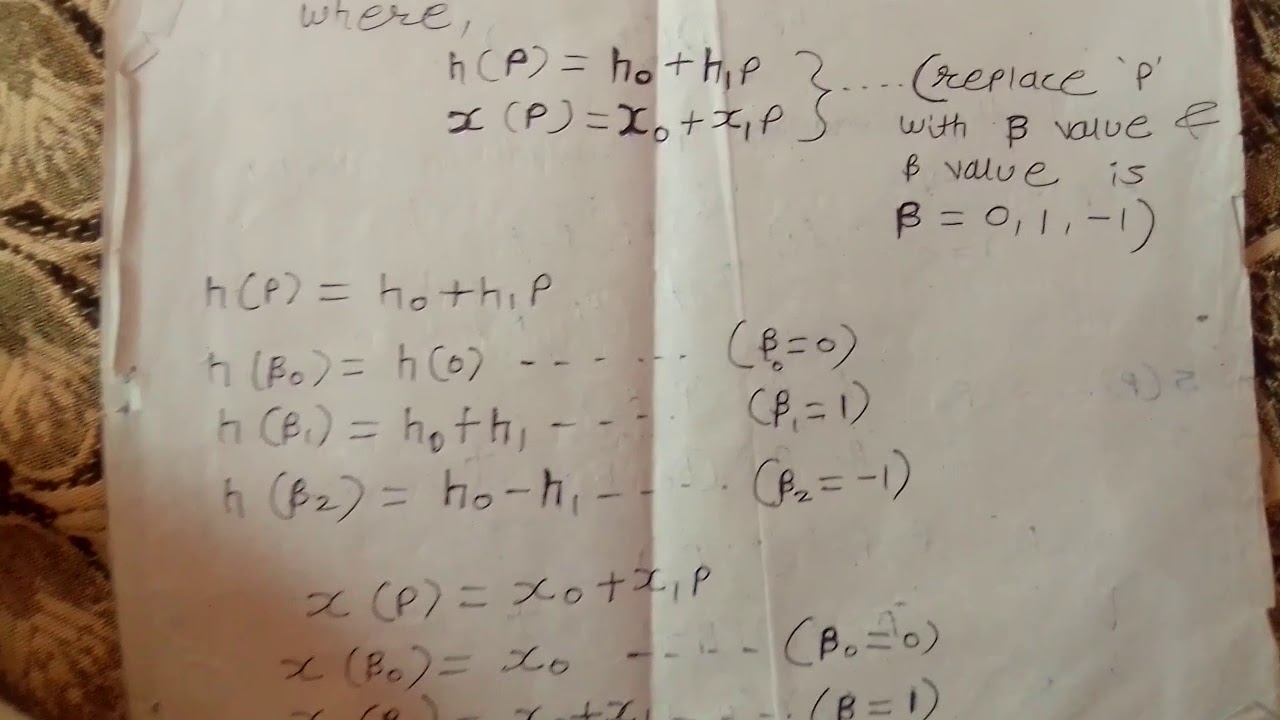 where,
h(p) = h₀ + h₁p } ..... (replace 'p'
x(p) = x₀ + x₁p } with β value &
β value is
β = 0, 1, -1)
h(p) = h₀ + h₁p
h(β₀) = h(0) - - - ... (β₀ = 0)
h(β₁) = h₀ + h₁ - - - - (β₁ = 1)
h(β₂) = h₀ - h₁ - - - - . (β₂ = -1)
x(p) = x₀ + x₁p
x(β₀) = x₀ - - - - - (β₀ = 0)
(β = 1)